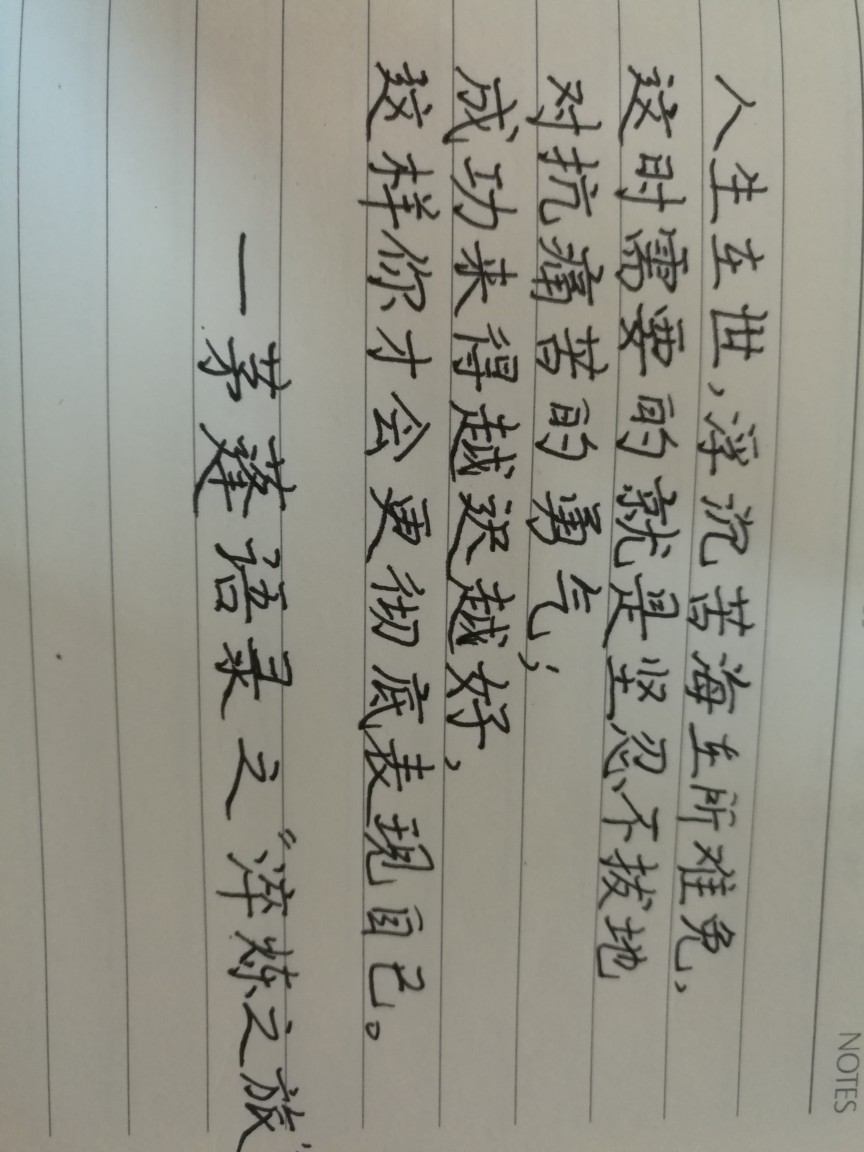 NOTES
人生在世,浮沉苦海在所难免,
这时需要的就是坚忍不拔地
对抗痛苦的勇气;
成功来得越迟越好,
这样你才会更彻底表现自己。
—茅蓬语录之“淬炼之旅”